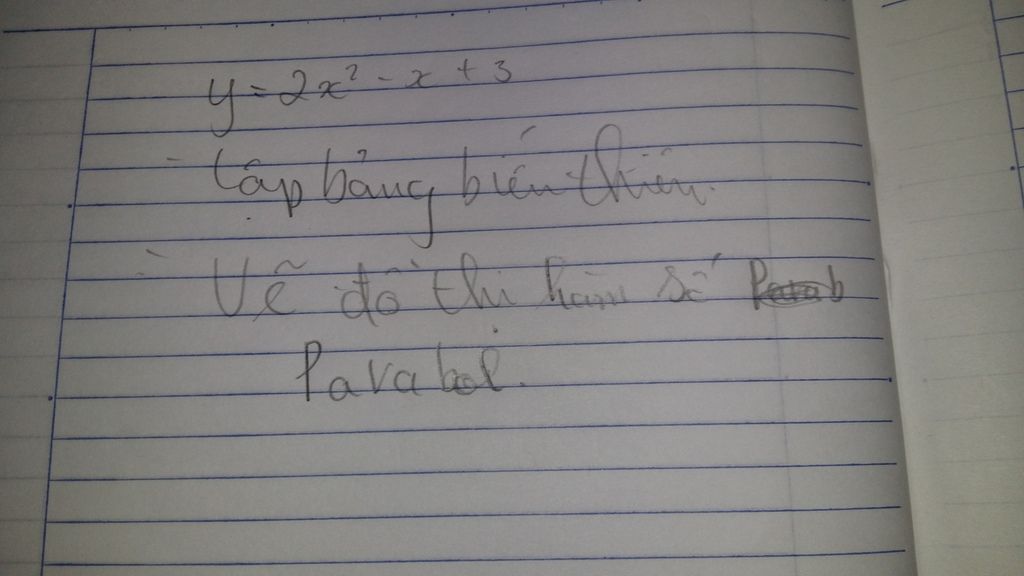 y = 2x² - x + 3
- Lập bảng biến thiên.
- Vẽ đồ thị hàm số
Parabol.